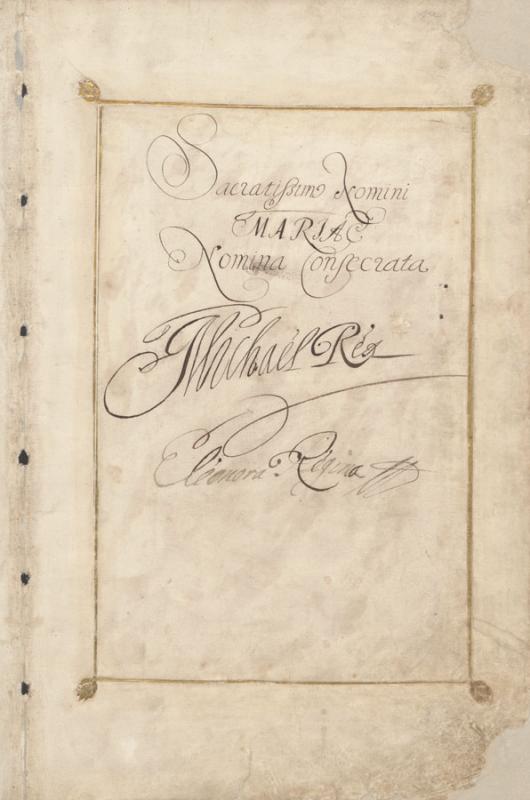 Sacratissimo Nomini
MARIAE
Nomina Consecrata
Michael Rex
Eleonora Regina